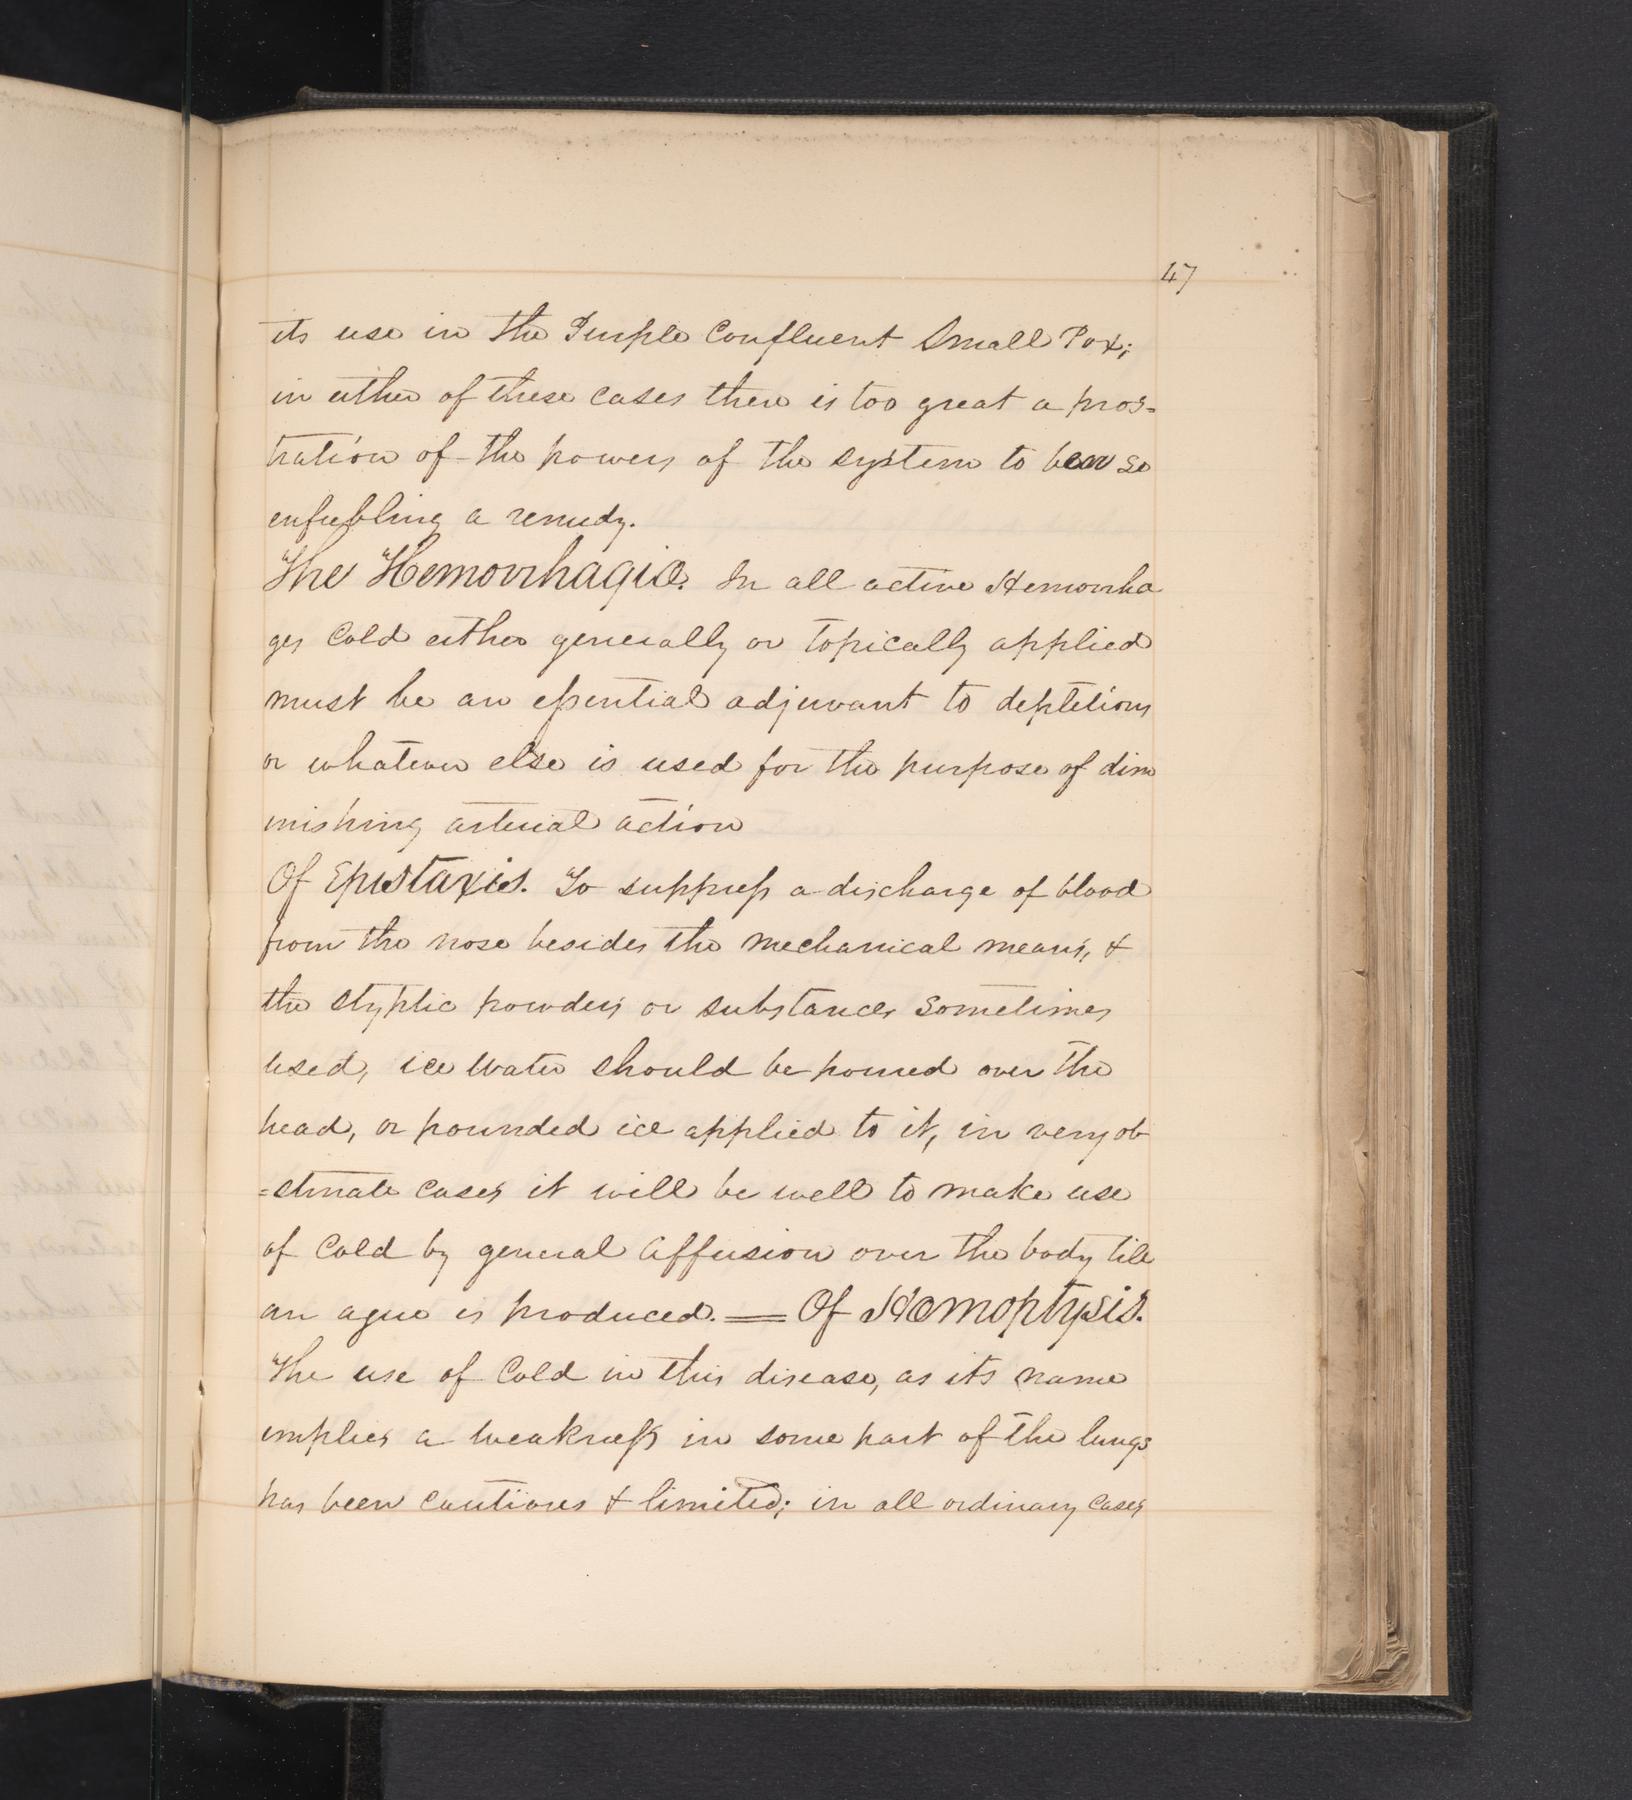 47
its use in the Purple Confluent Small Pox;
in either of these cases there is too great a pros=
tration of the powers of the system to bear so
enfeebling a remedy.
The Hemorrhagiæ. In all active Hemorrha
ges Cold either generally or topically applied
must be an essential adjuvant to depletions
or whatever else is used for the purpose of dim
inishing arterial action
Of Epistaxis. To suppress a discharge of blood
from the nose besides the mechanical means, &
the styptic powders or substances sometimes
used, ice water should be poured over the
head, or pounded ice applied to it, in very ob
=stinate cases it will be well to make use
of Cold by general affusion over the body till
an ague is produced. == Of Hemoptysis.
The use of Cold in this disease, as its name
implies a weakness in some part of the lungs
has been cautious & limited; in all ordinary cases